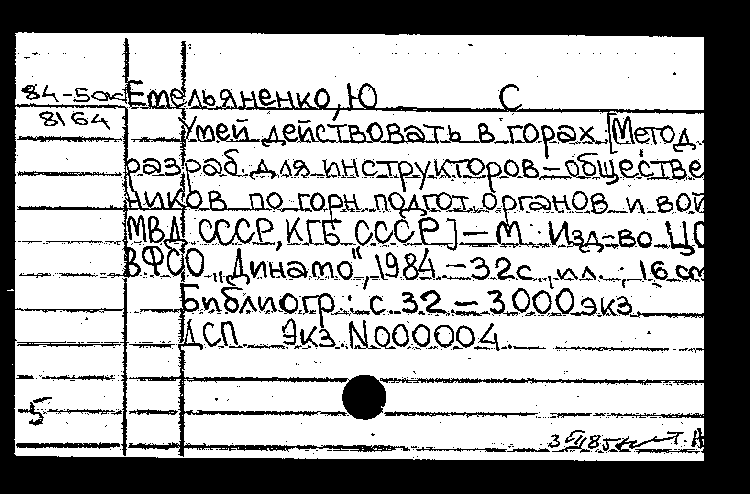 84-5 Емельяненко, Ю С
8164 Умей действовать в горах. [Метод.
разраб. для инструкторов-обществе
ников по горн. подгот. органов и вой
МВД СССР, КГБ СССР] - М.: Изд-во ЦС
ВФСО „Динамо", 1984. - 32 с., ил.; 16 см
Библиогр.: с. 32 - 3000 экз.
ДСП Экз. N000004.
5